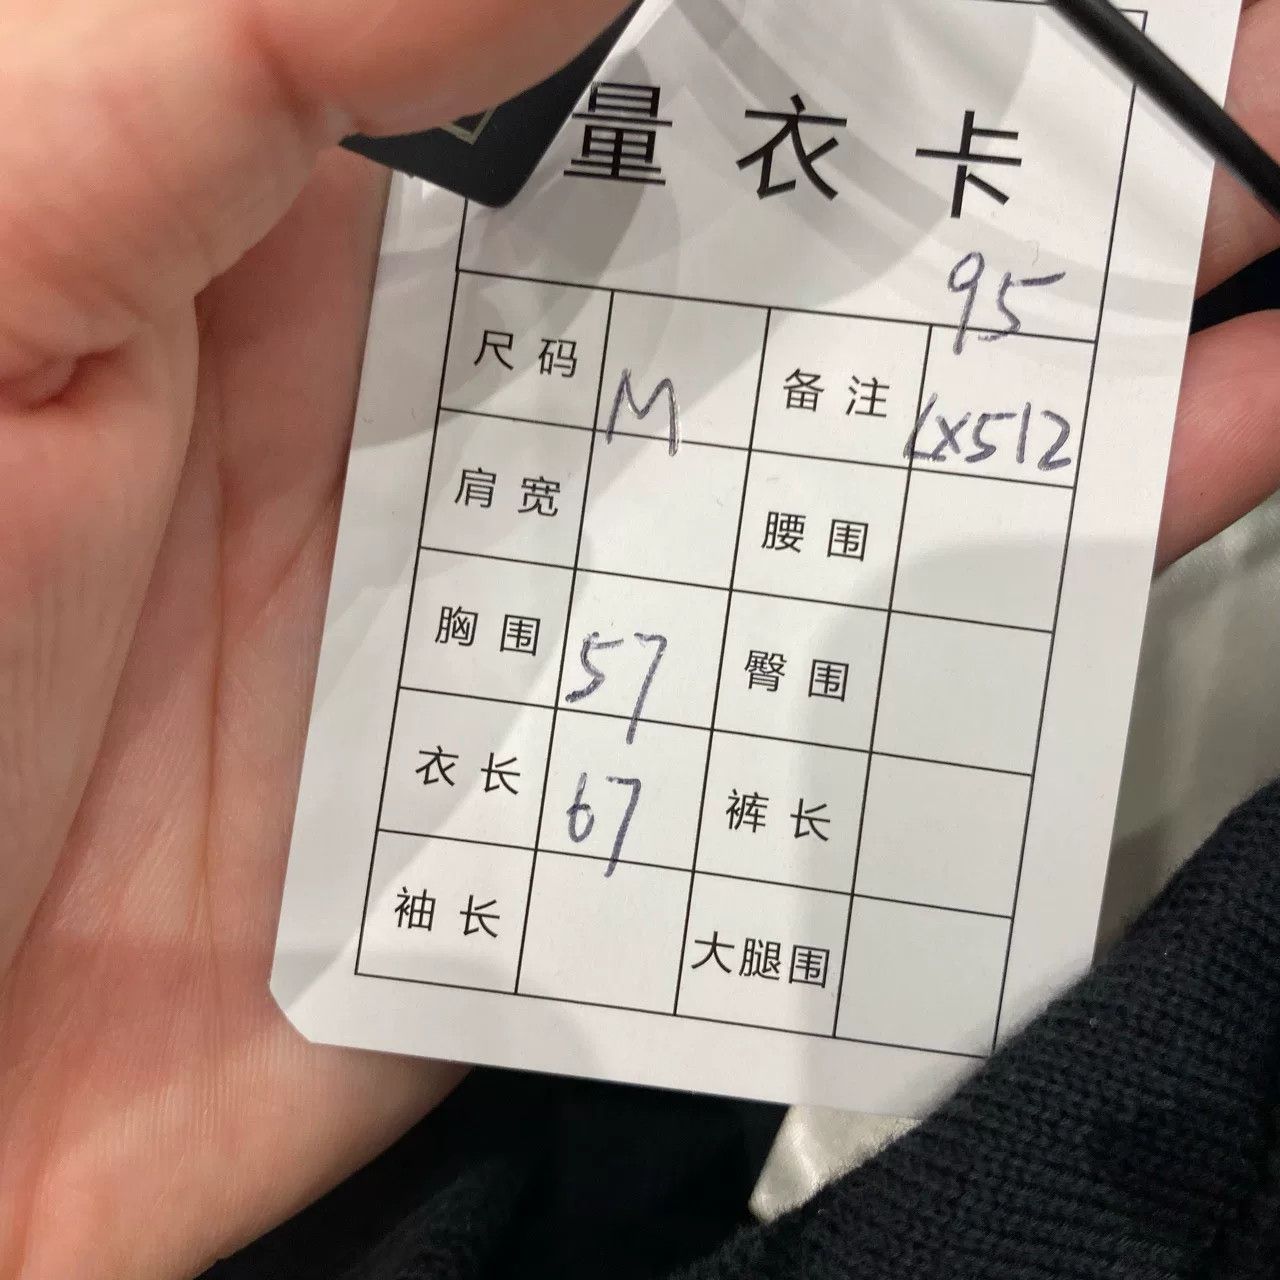 量衣卡
95
尺码 M 备注 LX512
肩宽 腰围
胸围 57 臀围
衣长 67 裤长
袖长 大腿围